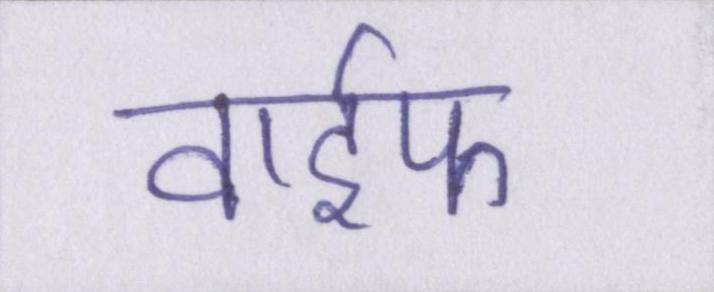 वाईफ